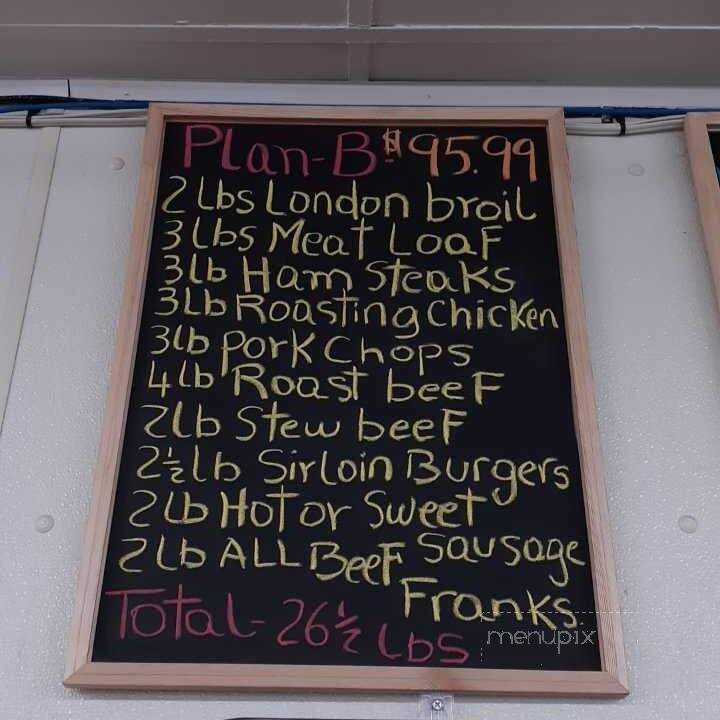 Plan-B $95.99
2 Lbs London broil
3 Lbs Meat Loaf
3lb Ham Steaks
3Lb Roasting Chicken
3lb Pork Chops
4lb Roast beef
2lb Stew beef
2½lb Sirloin Burgers
2lb Hot or Sweet
Sausage
2lb ALL Beef
Franks
Total- 26½ Lbs
menupix